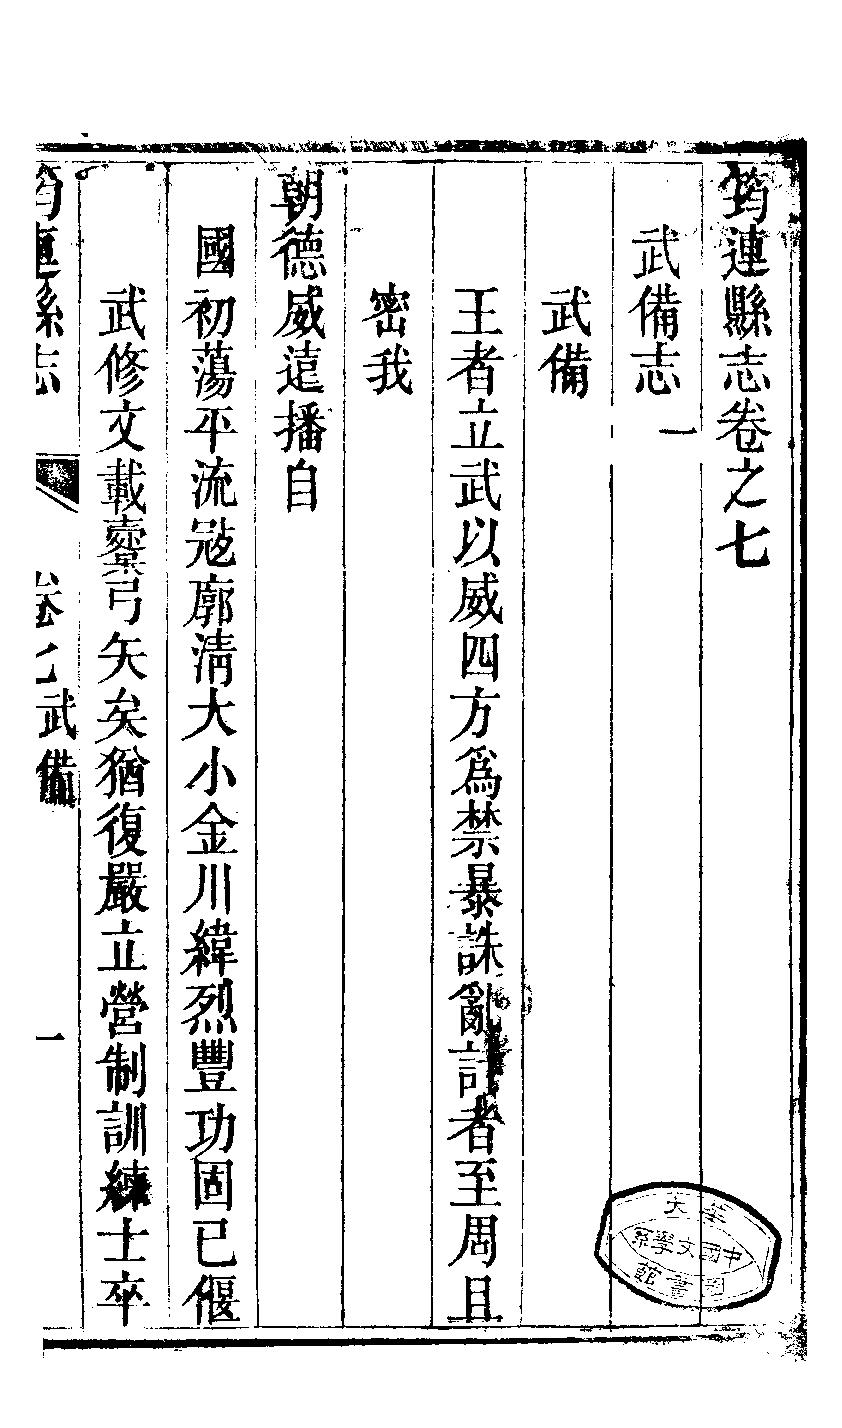 筠連縣志卷之七
武備志一
武備
王者立武以威四方爲禁暴誅亂計者至周且
密我
朝德威遠播自
國初蕩平流寇廓清大小金川緯烈豐功固已偃
武修文載櫜弓矢矣猶復嚴立營制訓練士卒
筠連縣志 卷七 武備 一
中國文學系
圖書館